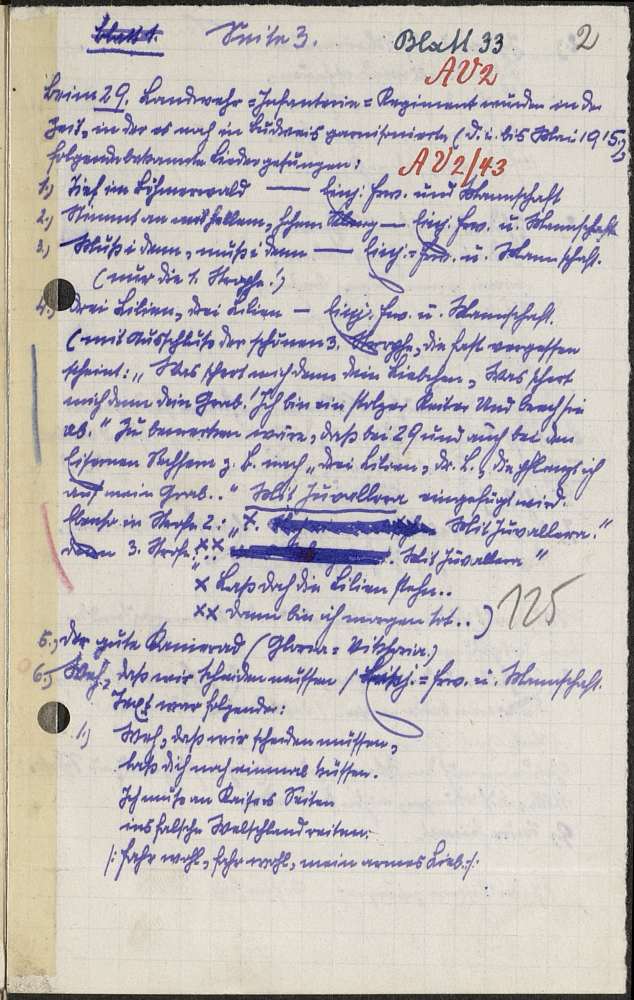 Blatt 1. Seite 3. Blatt 33 2
AV2
Beim 29. Landwehr=Infanterie=Regiment wurden in der
Zeit, in der es noch in Budweis garnisonierte (d. i. bis Mai 1915)
folgende bekannte Lieder gesungen:
AV2/43
1.) Tief im Böhmerwald — Einj. Frw. und Mannschaft
2.) Stimmt an mit hellem, hohem Klang — Einj. Frw. u. Mannschaft
3.) Muß i denn, muß i denn — Einj.=Frw. u. Mannschaft.
(nur die 1. Strophe!)
4.) Drei Lilien, drei Lilien — Einj. Frw. u. Mannschaft.
(mit Ausschluß der schönen 3. Strophe, die fast vergessen
scheint: „Was schert mich denn dein Liebchen, Was schert
mich denn dein Grab! Ich bin ein stolzer Reiter Und brech sie
ab." Zu bemerken wäre, daß bei 29 und auch bei den
Eisernen Sachsen z. B. nach „drei Lilien, dr. L., die pflanzt ich
auf mein Grab.." Mit Juvallera eingefügt wird.
Ebenso in Strofe 2: „x. Mit Juvallera."
3. Strofe: „xx. Mit Juvallera"
x Laß doch die Lilien stehn..
xx Denn bin ich morgen tot..)
125
5.) Der gute Kamerad (Gloria=Viktoria.)
6.) Weh, daß wir scheiden müssen / Einj.=Frw. u. Mannschaft.
Text war folgender:
1.) Weh, daß wir scheiden müssen,
laß dich noch einmal küssen.
Ich muß an Kaisers Seiten
ins falsche Welschland reiten.
/: Fahr wohl, fahr wohl, mein armes Lieb. :/